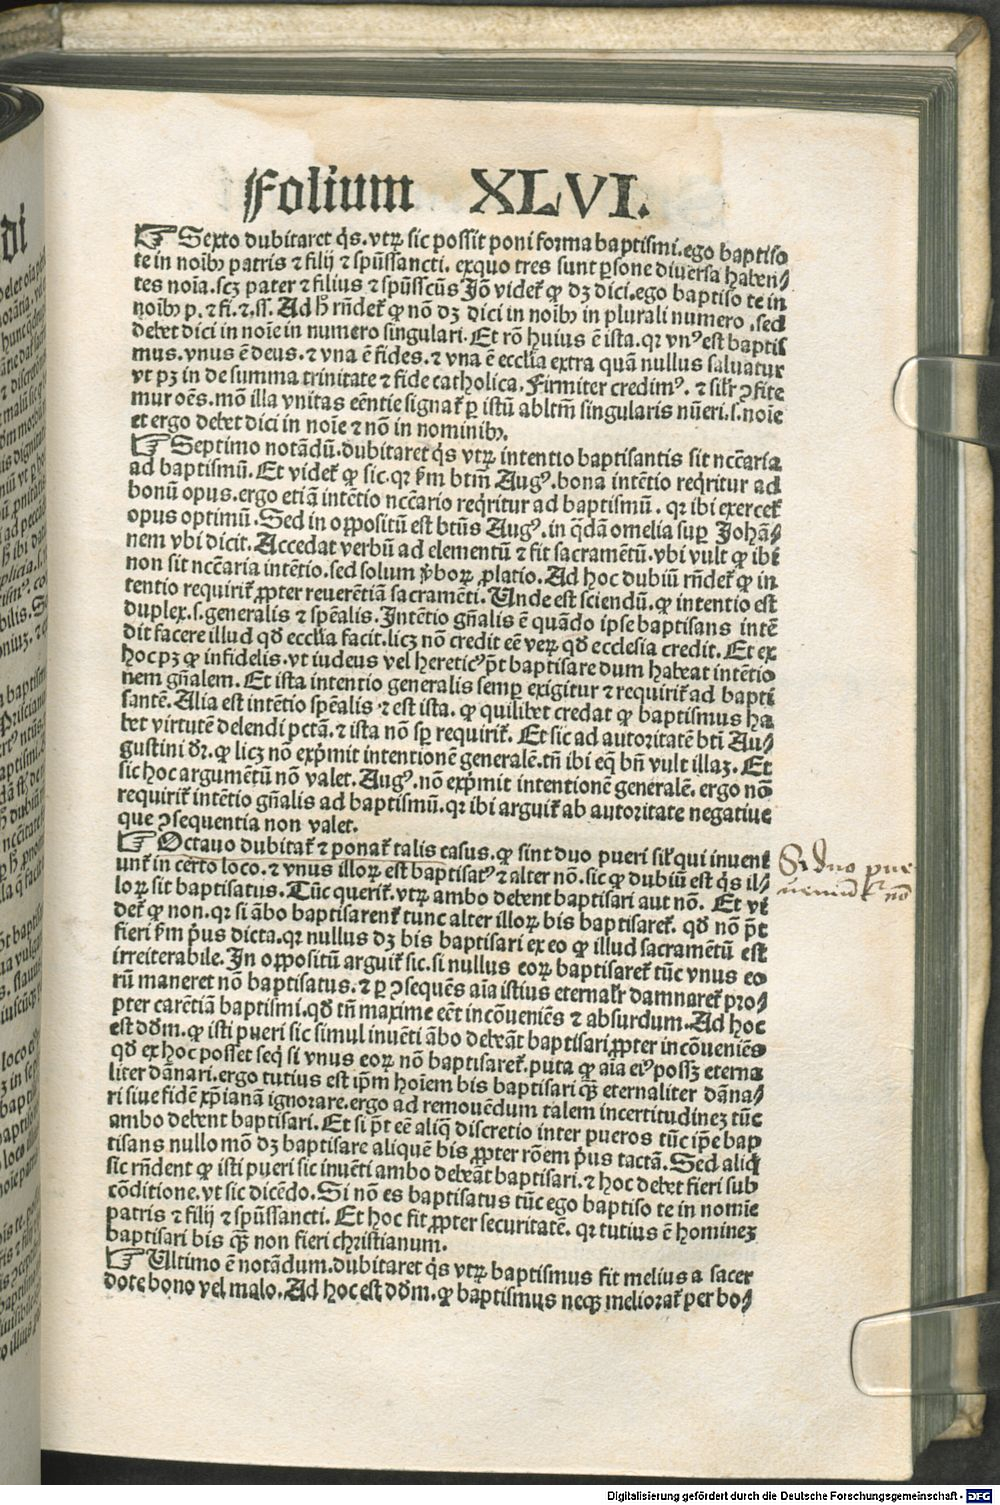 Folium XLVI.
☞ Sexto dubitaret q̃s. vtrũ sic possit poni forma baptismi. ego baptiso
te in noībꝰ patris ⁊ filij ⁊ spũssancti. exquo tres sunt ꝑsone diuersa haben⸗
tes noīa. scꝫ pater ⁊ filius ⁊ spũsscũs Jō videt̃ ꝙ dꝫ dici. ego baptiso te in
noībꝰ p. ⁊ fi. ⁊. ss. Ad h̃ rñdet̃ ꝙ nō dꝫ dici in noībꝰ in plurali numero, sed
debet dici in noīe in numero singulari. Et rō huius ē ista. qꝛ vnꝰ est baptis
mus. vnus ē deus. ⁊ vna ē fides. ⁊ vna ē ecclīa extra quā nullus saluatur
vt pꝫ in de summa trinitate ⁊ fide catholica. Firmiter credimꝰ. ⁊ silr̃ ꝯfite
mur oēs. mō illa vnitas eēntie signat̃ ꝑ istū abltm̄ singularis nūeri. s. noīe
et ergo debet dici in noīe ⁊ nō in nominibꝰ.
☞ Septimo notādū. dubitaret q̃s vtrũ intentio baptisantis sit nccāria
ad baptismū. Et videt̃ ꝙ sic. qꝛ ẜm btm̄ Augꝰ. bona intētio reqrĩtur ad
bonū opus. ergo etiā intētio nccārio reqrĩtur ad baptismū. qꝛ ibi exercet̃
opus optimū. Sed in oppositū est btūs Augꝰ. in q̃dā omelia suꝑ Johā⸗
nem vbi dicit. Accedat verbū ad elementū ⁊ fit sacramētū. vbi vult ꝙ ibi
non sit nccāria intētio. sed solum v̓boꝝ ꝓlatio. Ad hoc dubiū rñdet̃ ꝙ in
tentio requirit̃ ꝓpter reuerētiā sacramēti. Unde est sciendū. ꝙ intentio est
duplex. s. generalis ⁊ spēalis. Intētio gñalis ē quādo ipse baptisans intē
dit facere illud qđ ecclīa facit. licꝫ nō credit eē veꝝ qđ ecclesia credit. Et ex
hoc pꝫ ꝙ infidelis. vt iudeus vel hereticꝰ pt̄ baptisare dum habeat intētio
nem gñalem. Et ista intentio generalis semꝑ exigitur ⁊ requirit̃ ad bapti
santē. Alia est intētio spēalis ⁊ est ista. ꝙ quilibet credat ꝙ baptismus ha
bet virtutē delendi pctā. ⁊ ista nō sꝑ requirit̃. Et sic ad autoritatē bti Au⸗
gustini dr̄. ꝙ licꝫ nō exp̃mit intentionē generalē. tñ ibi eq̃ bñ vult illaꝫ. Et
sic hoc argumētū nō valet. Augꝰ. nō exp̃mit intentionē generalē. ergo non
requirit̃ intētio gñalis ad baptismū. qꝛ ibi arguit̃ ab autoritate negatiue
que ꝯsequentia non valet.
☞ Octauo dubitat̃ ⁊ ponat̃ talis casus. ꝙ sint duo pueri sil̃ qui inueni
unt̃ in certo loco. ⁊ vnus illoꝝ est baptisatꝰ ⁊ alter nō. sic ꝙ dubiū est q̃s il⸗
loꝝ sit baptisatus. Tūc querit̃. vtrũ ambo debent baptisari aut nō. Et vi
det̃ ꝙ non. qꝛ si ābo baptisarent̃ tunc alter illoꝝ bis baptisaret̃. qđ nō pt̄
fieri ẜm p̃us dicta. qꝛ nullus dꝫ bis baptisari ex eo ꝙ illud sacramētū est
irreiterabile. In oppositū arguit̃ sic. si nullus eoꝝ baptisaret̃ tūc vnus eo
rū maneret nō baptisatus. ⁊ ꝑ ꝯsequēs aīa istius eternalr̃ damnaret̃ pro⸗
pter carētiā baptismi. qđ tñ maxime eēt incōueniēs ⁊ absurdum. Ad hoc
est dd̄m. ꝙ isti pueri sic simul inuēti ābo debeāt baptisari ꝓpter incōueniēs
qđ ex hoc posset seq̃ si vnus eoꝝ nō baptisaret̃. puta ꝙ aīa eiꝰ possꝫ eterna
liter dānari. ergo tutius est ip̄m hoīem bis baptisari qꝫ̃ eternaliter dāna⸗
ri siue fidē xp̄ianā ignorare. ergo ad remouēdum talem incertitudineꝫ tūc
ambo debent baptisari. Et si pt̄ eē aliq̃ discretio inter pueros tūc ip̄e bap
tisans nullo mō dꝫ baptisare aliquē bis ꝓpter rōem p̃us tactā. Sed aliq̃
sic rñdent ꝙ isti pueri sic inuēti ambo debeāt baptisari. ⁊ hoc debet fieri sub
cōditione. vt sic dicēdo. Si nō es baptisatus tūc ego baptiso te in nomīe
patris ⁊ filij ⁊ spũssancti. Et hoc fit ꝓpter securitatē. qꝛ tutius ē homineꝫ
baptisari bis qꝫ̃ non fieri christianum.
☞ Ultimo ē notādum. dubitaret q̃s vtrũ baptismus fit melius a sacer
dote bono vel malo. Ad hoc est dd̄m. ꝙ baptismus neqꝫ meliorat̃ per bo⸗
Si duo pue
Digitalisierung gefördert durch die Deutsche Forschungsgemeinschaft - DFG